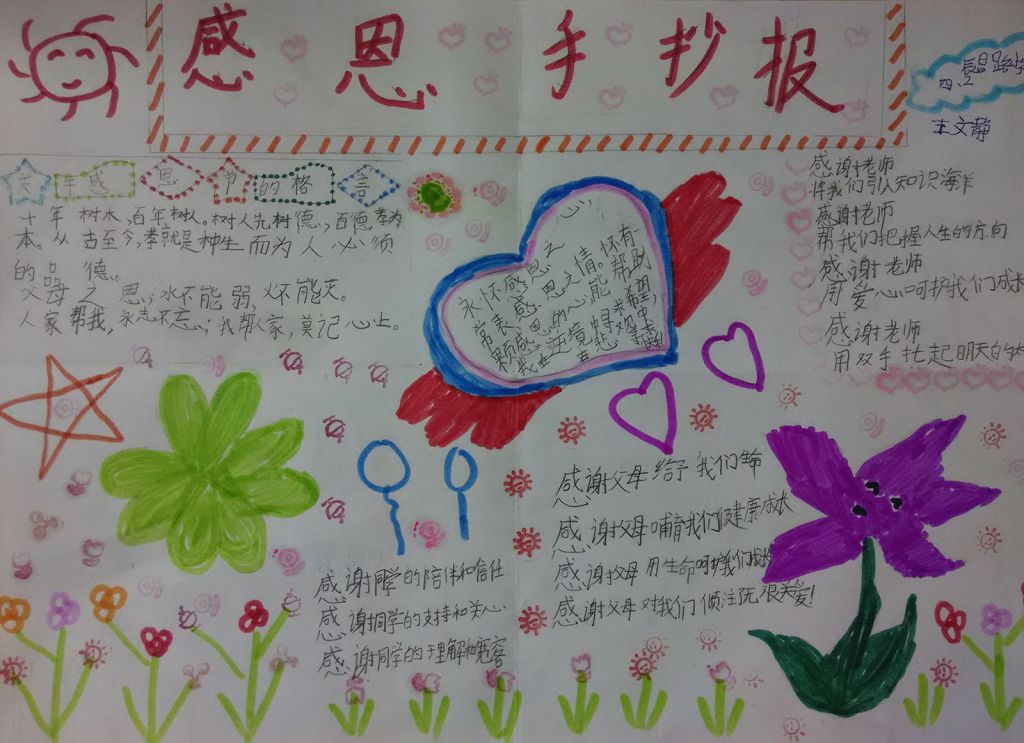 感恩手抄报
昌路学
四.2
王文静
关于感恩节的格言
十年树木,百年树人。树人先树德,百德孝为
本。从古至今,孝就是种生而为人必须
的品德。
父母之恩,水不能弱,火不能灭。
人家帮我,永志不忘;我帮人家,莫记心上。
心,
永怀感恩之
常表感恩之情。怀有一
颗感恩的心,能帮助
我在逆境中寻求希望,
在悲观中
感谢老师
伴我们引认知识海洋
感谢老师
帮我们把握人生的方向
感谢老师
用爱心呵护我们成长
感谢老师
用双手托起明天的
感谢父母给予我们生命
感谢父母哺育我们健康成长
感谢父母用生命呵护我们成长
感谢父母对我们倾注无限关爱!
感谢同学的陪伴和信任
感谢同学的支持和关心
感谢同学的理解和宽容